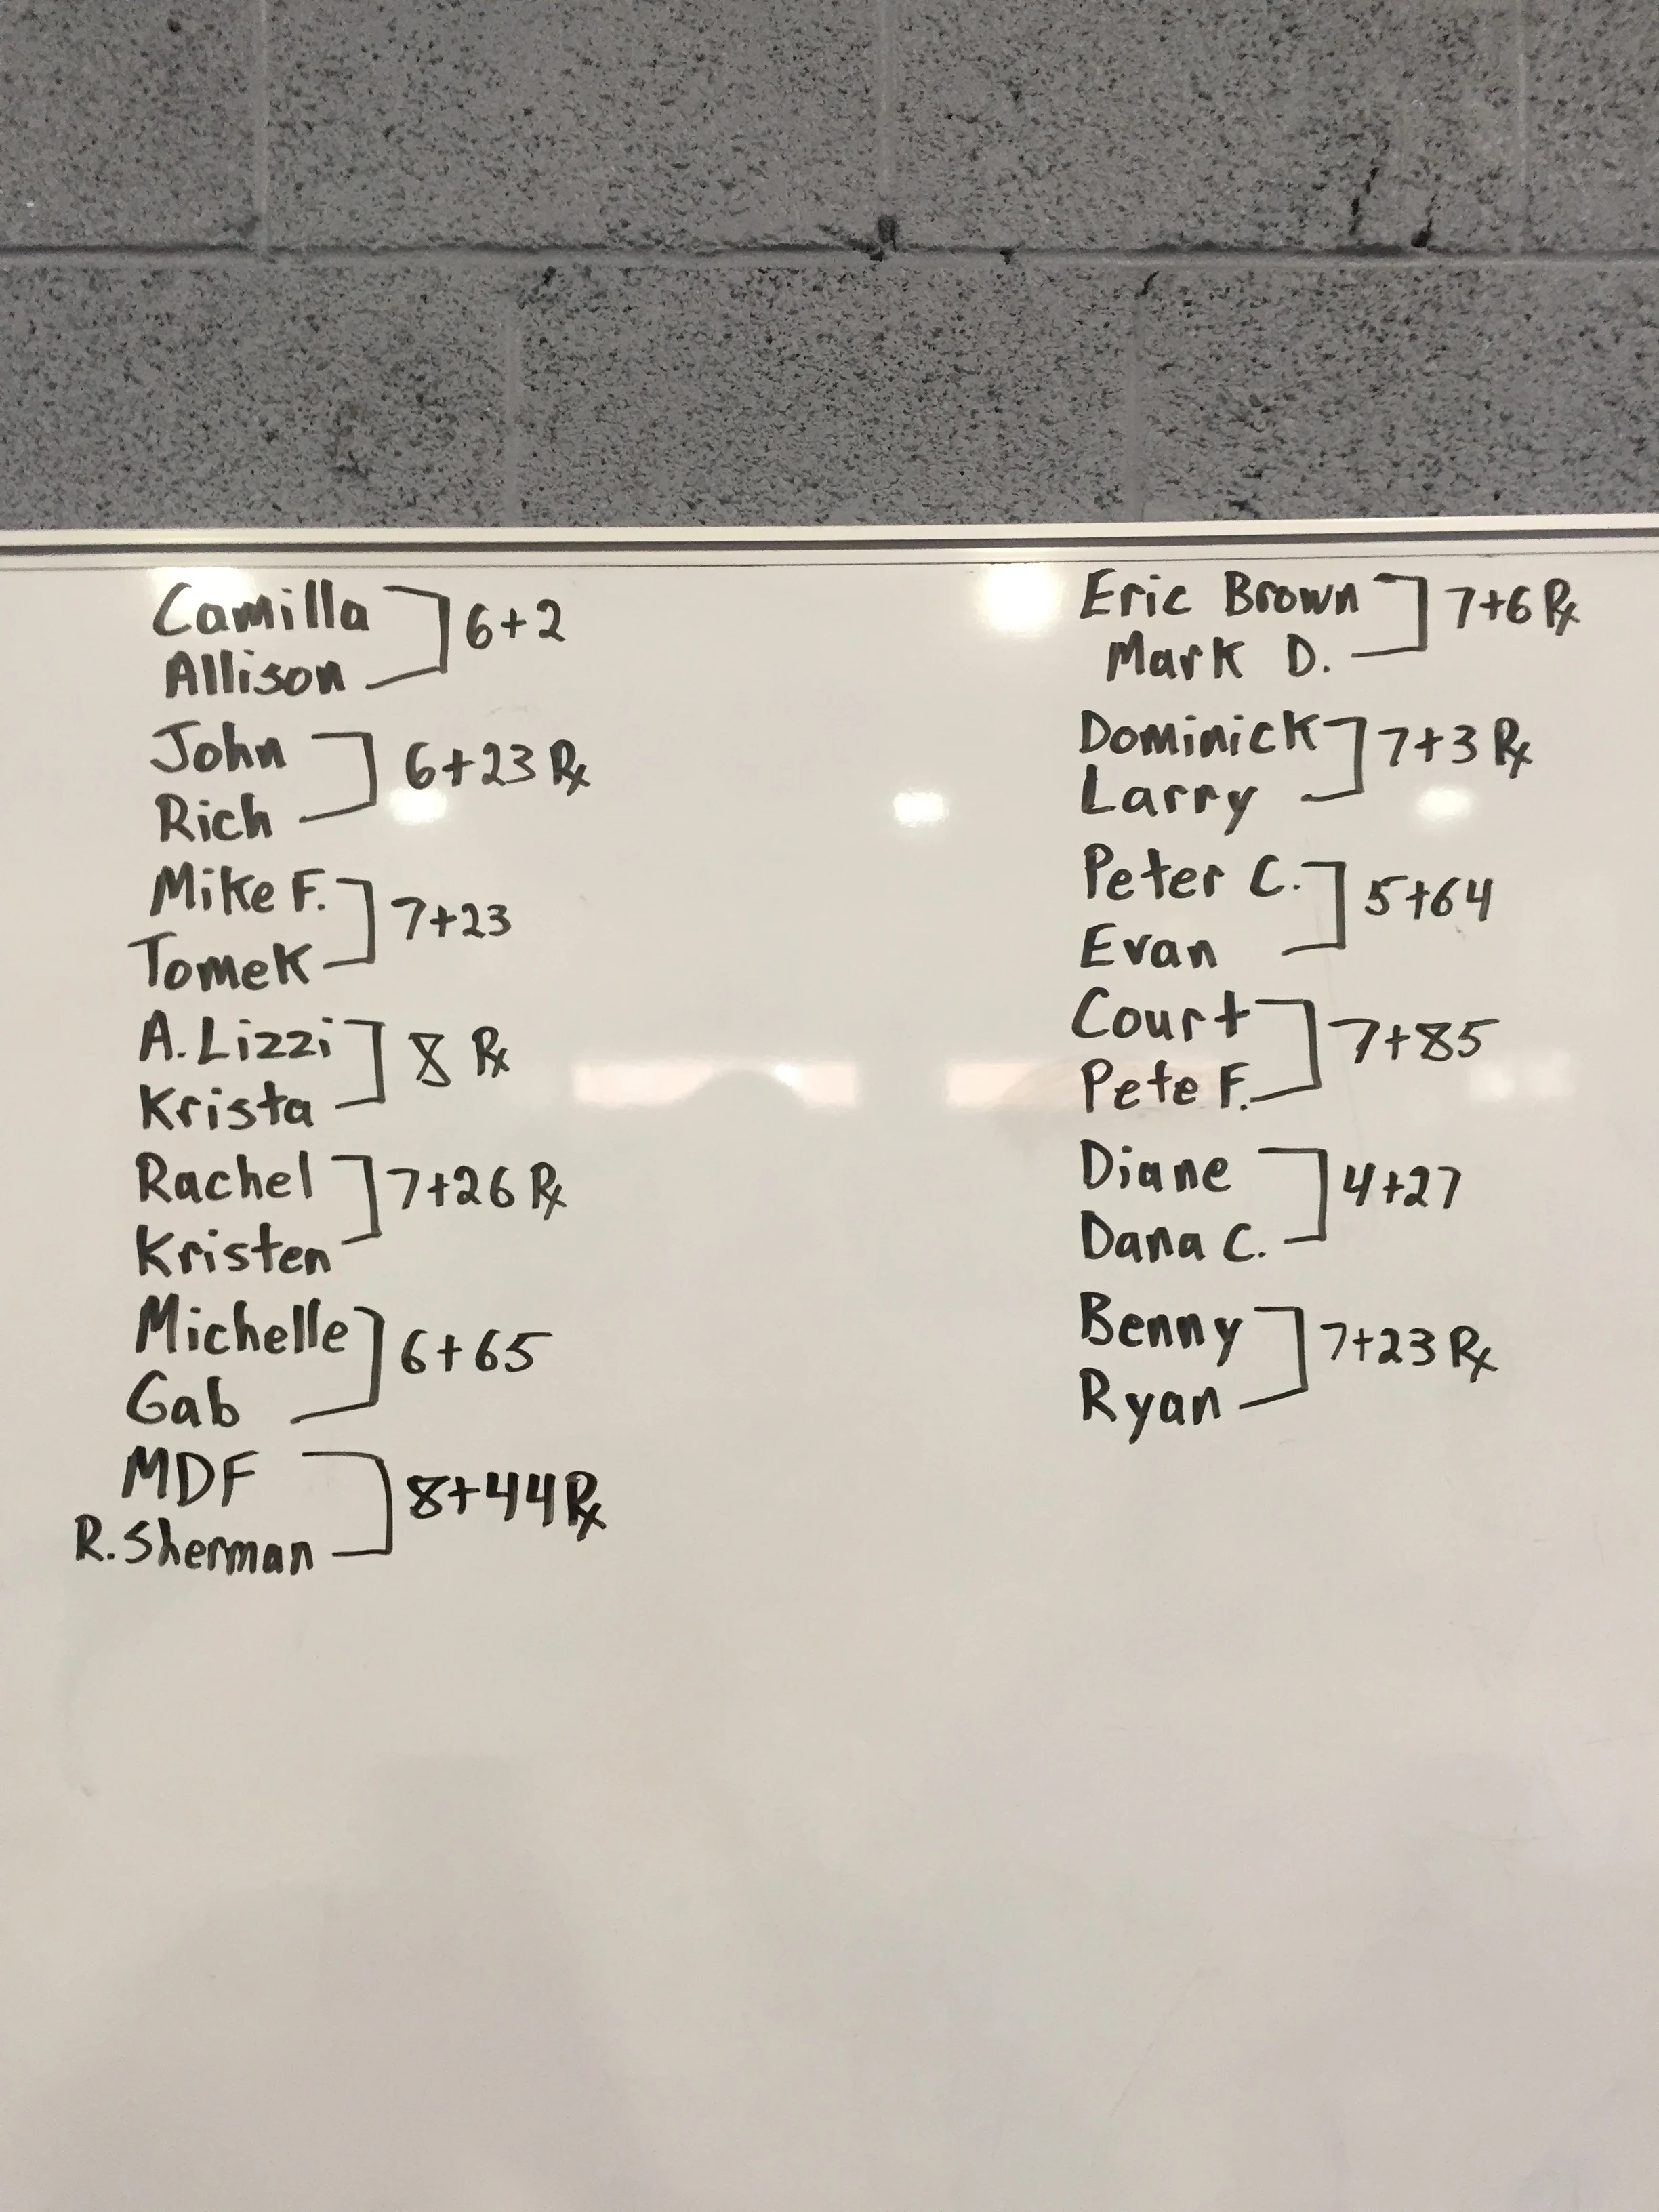 Camilla
6+2
Allison
John
6+23 Rx
Rich
Mike F.
7+23
Tomek
A. Lizzi
8 Rx
Krista
Rachel
7+26 Rx
Kristen
Michelle
6+65
Gab
MDF
8+44 Rx
R. Sherman
Eric Brown
7+6 Rx
Mark D.
Dominick
7+3 Rx
Larry
Peter C.
5+64
Evan
Court
7+85
Pete F.
Diane
4+27
Dana C.
Benny
7+23 Rx
Ryan